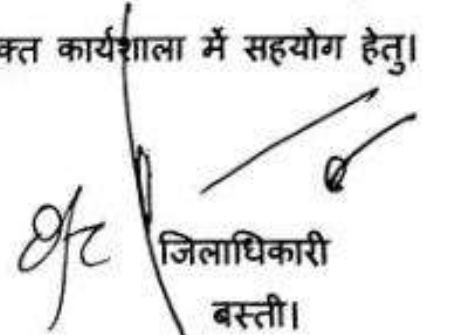 क्त कार्यशाला में सहयोग हेतु।
जिलाधिकारी
बस्ती।